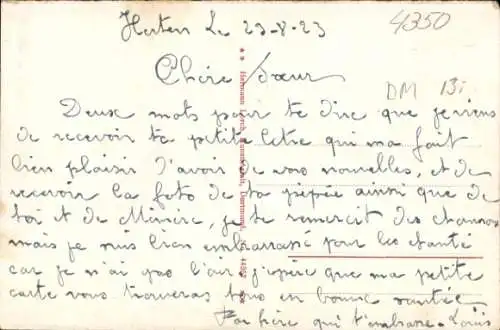 Herten Le 23-8-23
4350
Chère Sœur
DM 13.
Deux mots pour te dire que je viens
de recevoir ta petite letre qui ma fait
bien plaisir d'avoir de vos nouvelles, et de
recevoir la foto de ta pépée ainsi que de
toi et de , je te remercit des chansons
mais je suis bien embarrassé pour les chanté
car je n'ai pas l'air j'espère que ma petite
carte vous trouveras tous en bonne santée
Ton frère qui t'embrasse - Louis
Hermann Lorch Kunstanstalt, Dortmund.